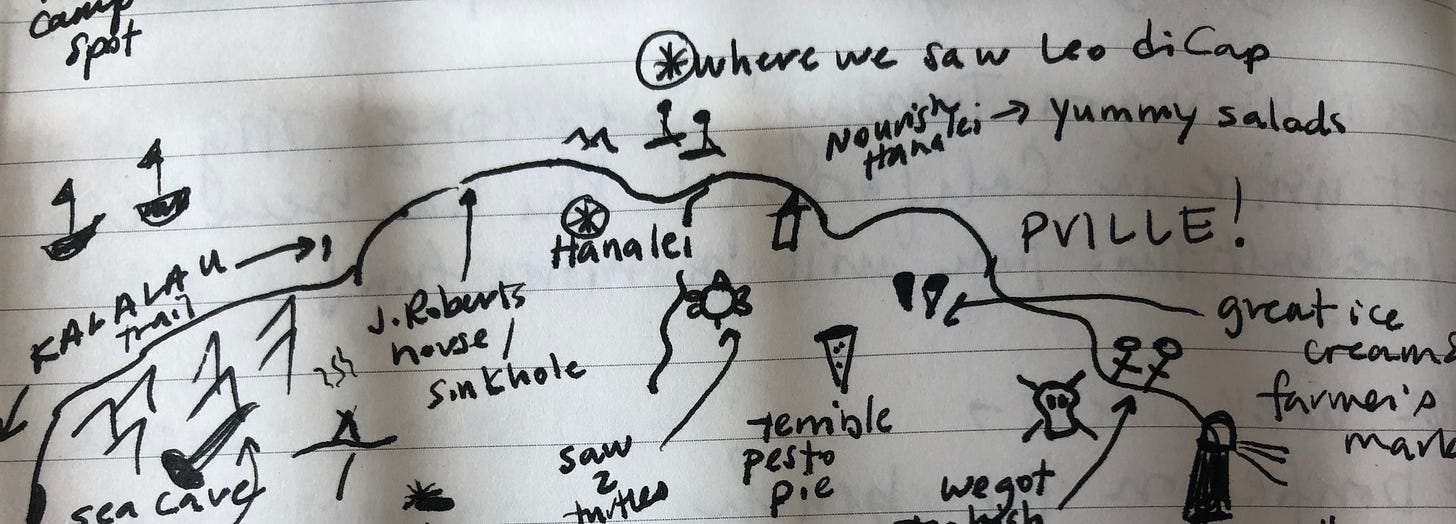 camp
spot
where we saw Leo diCap
Nourish
Hanalei
→ yummy salads
KALALAU →
trail
Hanalei
PVILLE!
J. Roberts
house /
sinkhole
great ice
creams
farmer's
mark
terrible
pesto
pie
saw
2
turtles
sea cave
we got